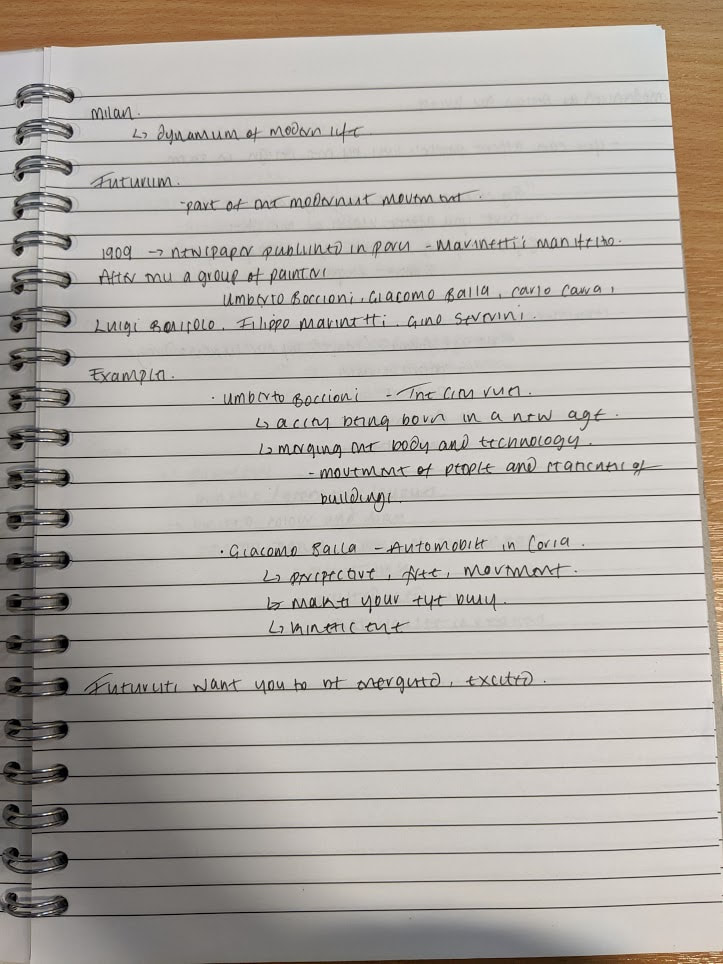 Milan.
↳ dynamism of modern life
Futurism.
- part of the modernist movement.
1909 → newspaper published in paris - Marinetti's manifesto.
After this a group of painters
Umberto Boccioni, Giacomo Balla, Carlo Carra,
Luigi Russolo, Filippo Marinetti, Gino Severini.
Examples.
· Umberto Boccioni - The city rises.
↳ a city being born in a new age.
↳ merging the body and technology.
- movement of people and staticness of
buildings.
· Giacomo Balla - Automobile in Corsa.
↳ perspective, free, movement.
↳ makes your eye busy.
↳ kinetic eye
Futurists want you to be energised, excited.